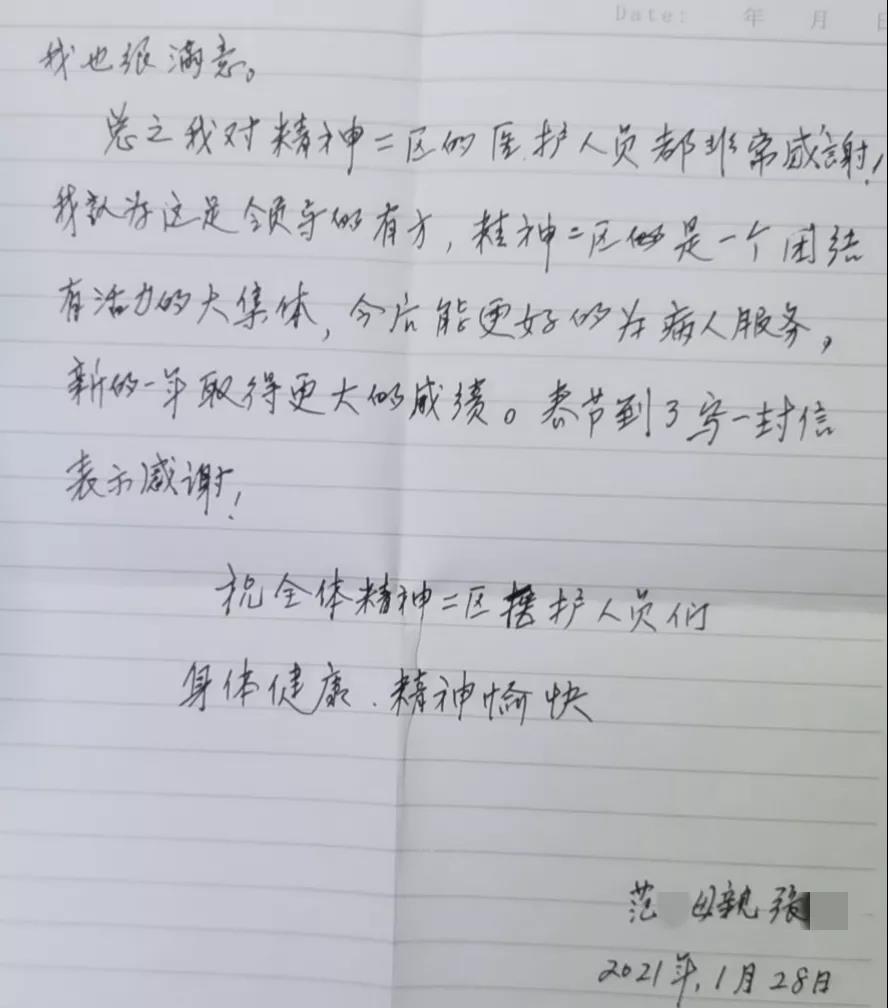 Date: 年 月 日
我也很满意。
总之我对精神二区的医护人员都非常感谢!
我认为这是领导的有方,精神二区的是一个团结
有活力的大集体,今后能更好的为病人服务,
新的一年取得更大的成绩。春节到了写一封信
表示感谢!
祝全体精神二区医护人员们
身体健康.精神愉快
范 母亲张
2021年,1月28日